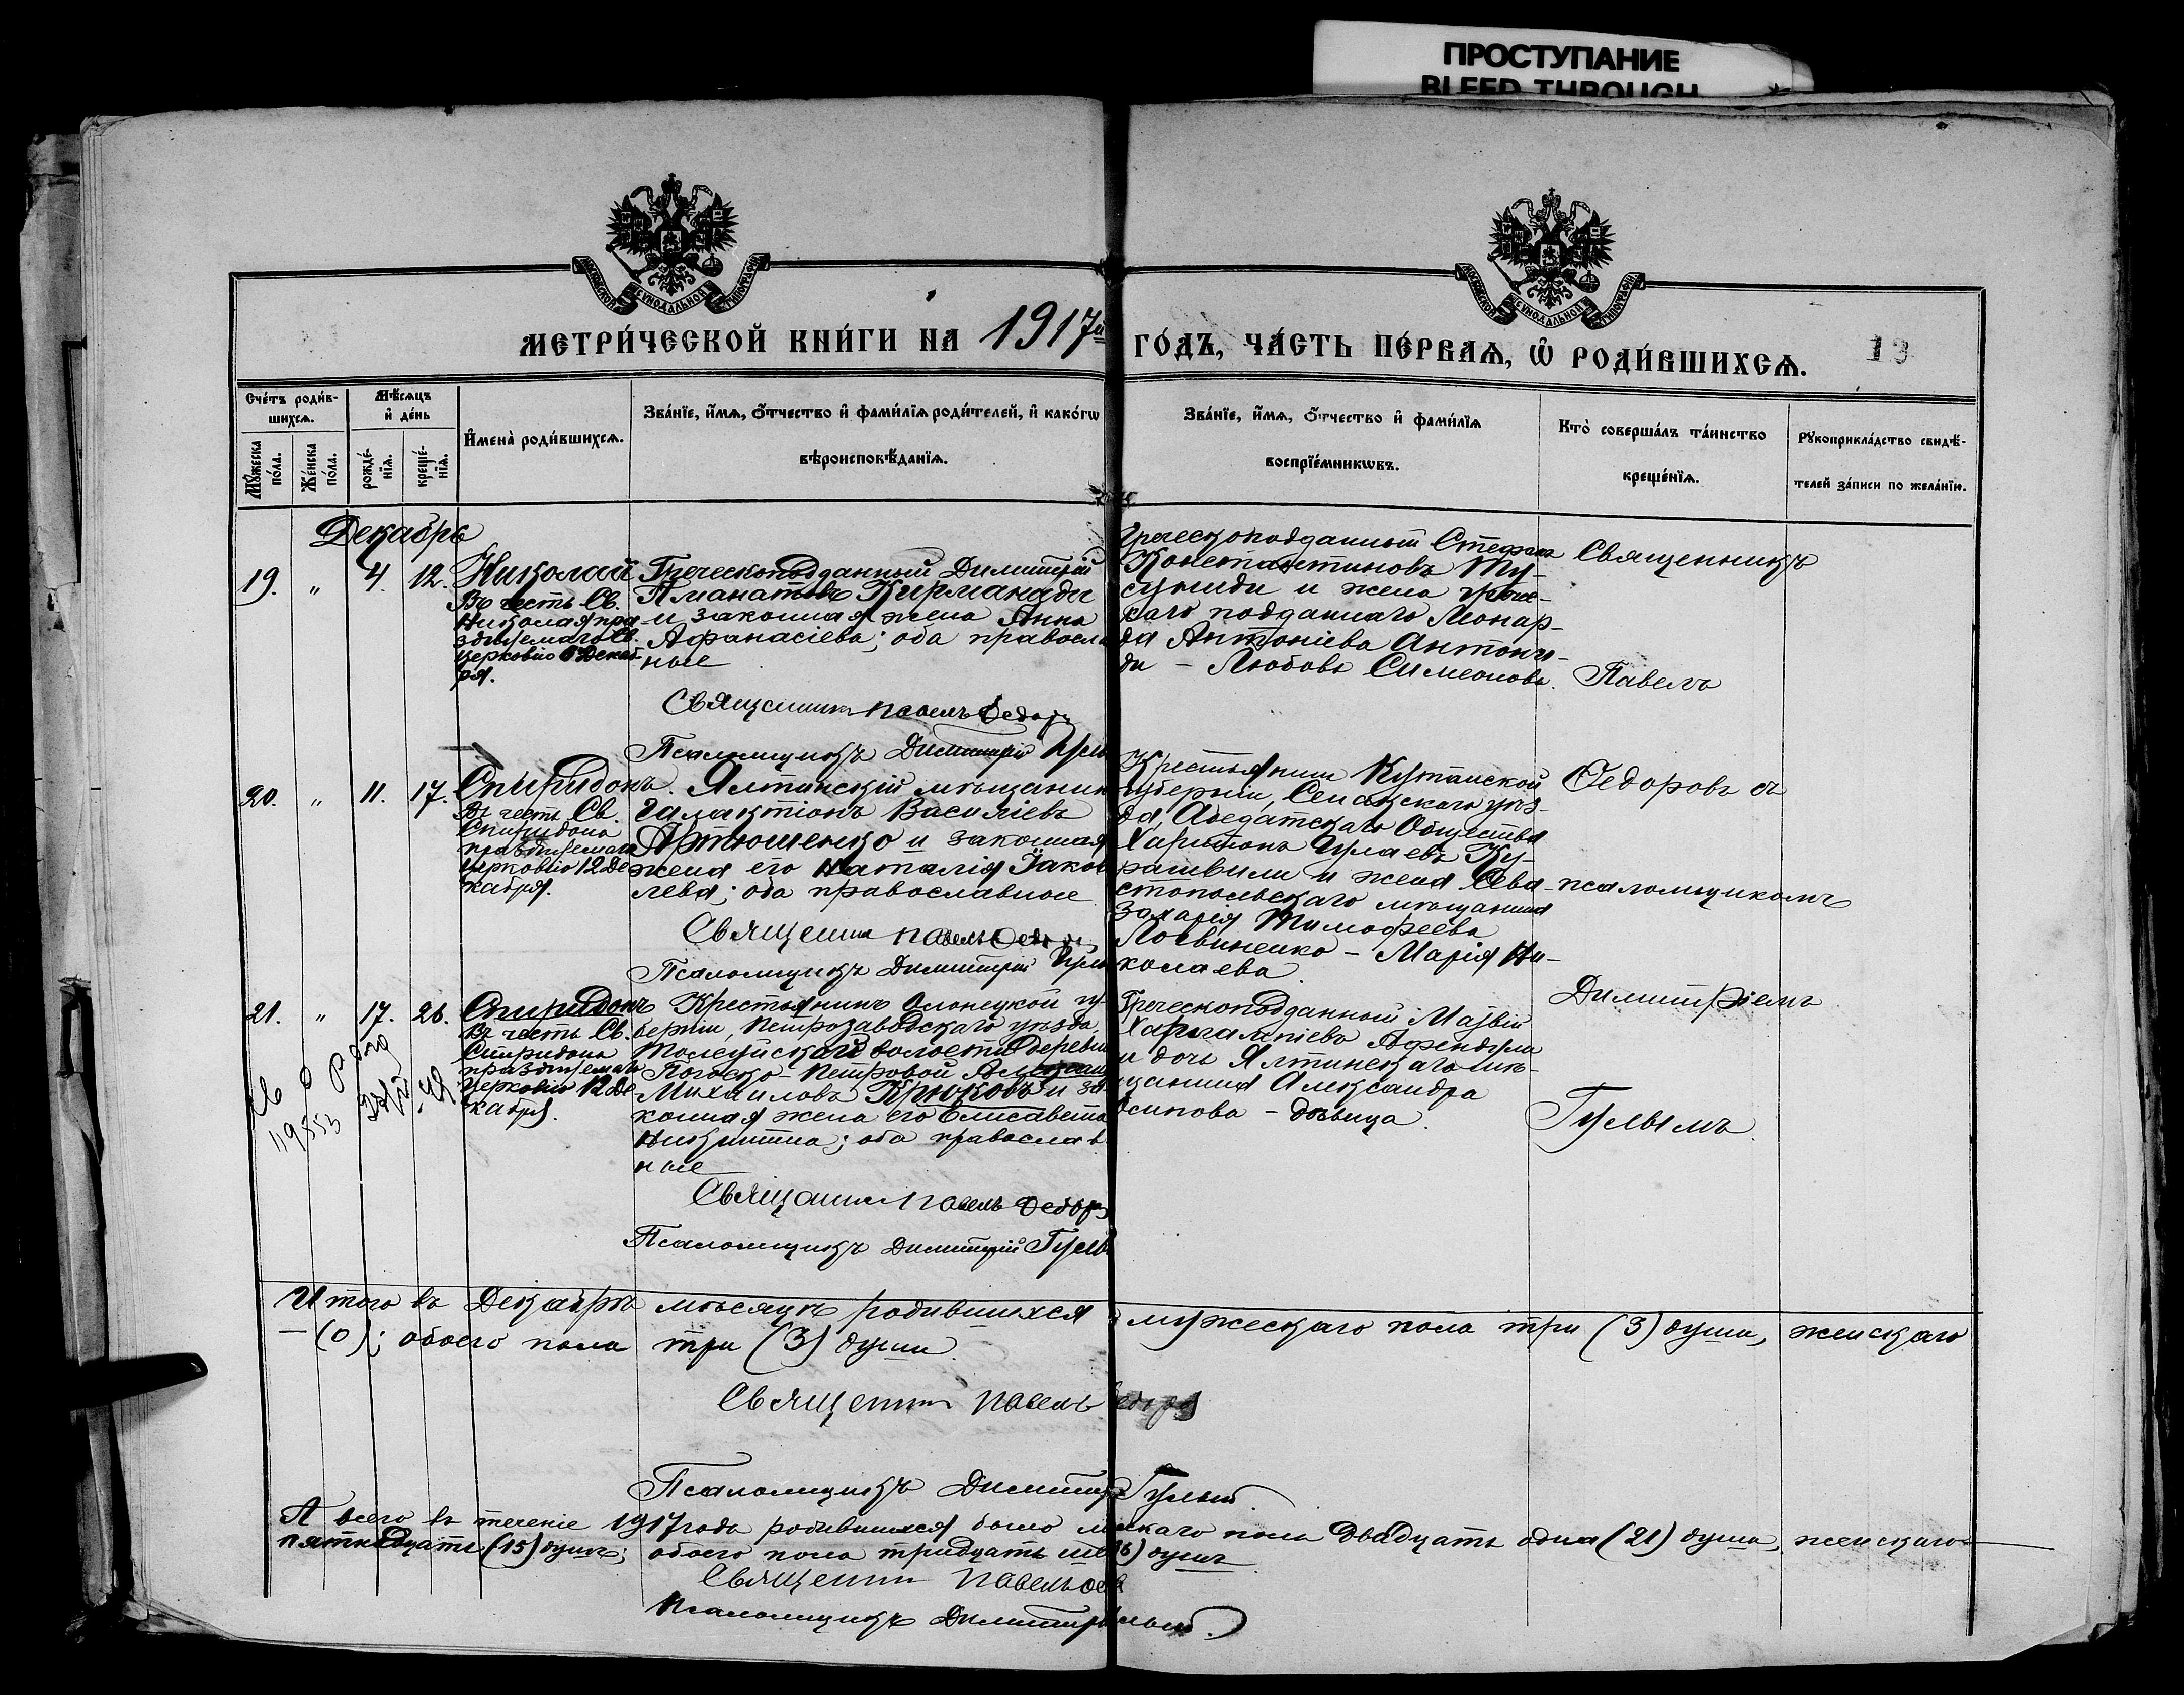 ПРОСТУПАНИЕ
BLEED THROUGH
МОСКОВСКОЙ СѴНОДАЛЬНОЙ ТИПОГРАФІИ
МОСКОВСКОЙ СѴНОДАЛЬНОЙ ТИПОГРАФІИ
МЕТРИ́ЧЕСКОЙ КНИ́ГИ НА 1917й ГО́ДЪ, ЧА́СТЬ ПЕ́РВАѦ, Ѽ РОДИ́ВШИХСѦ. 13
Сче́тъ роди́в-
шихсѧ.
Мꙋ́жеска по́ла.
Же́нска по́ла.
Мѣ́сѧцъ
и҆ де́нь
рожде́-
нїѧ.
креще́-
нїѧ.
И҆мена̀ роди́вшихсѧ.
Зва́нїе, и҆́мѧ, ѻ҆́тчество и҆ фами́лїѧ роди́телей, и҆ како́гѡ
вѣроисповѣ́данїѧ.
Зва́нїе, и҆́мѧ, ѻ҆́тчество и҆ фами́лїѧ
воспрїе́мникѡвъ.
Кто̀ соверша́лъ та́инство
креще́нїѧ.
Рꙋкоприкла́дство свидѣ́-
телей за́писи по жела́нїю.
Декабрь
19. " 4. 12.
Николай
Въ честь Св.
Николая пра-
зднуемаго Св.
Церковію 6 Декаб-
ря.
Греческоподданный Димитрій
Аманатовъ Кирманиди
и законная жена Анна
Афанасіева; оба правосла
ные
Священникъ Павелъ Федоровъ
Псаломщикъ Димитрій Гулы
Греческоподданный Стефанъ
Константиновъ Ту-
сузиди и жена грече-
скаго подданнаго Леонар-
да Антоніева Антони-
ди - Любовь Симеонова.
Священникъ
Павелъ
20. " 11. 17.
Спиридонъ.
Въ честь Св.
Спиридона
празднуемаго
Церковію 12 Де
кабря.
Ялтинскій мѣщанин
Галактіонъ Василіевъ
Артюшенко и законная
жена его Наталія Іаков
лева; оба православные
Священникъ Павелъ Федоровъ
Псаломщикъ Димитрій Гулы
Крестьянинъ Кутаиской
губерніи, Сенакскаго уѣз-
да, Абедатскаго Общества
Харитонъ
и жена Сева-
стопольскаго мѣщанина
Захарія Тимофеева
Логвиненко - Марія Ни-
колаева
Федоровъ съ
псаломщикомъ
21. " 17. 26.
Спиридонъ
Въ честь Св.
Спиридона
празднуемаго
Церковію 12 Де
кабря.
Крестьянинъ Олонецкой гу-
берніи, Петрозаводскаго уѣзда,
волости деревни
Михаиловъ Крюковъ и за
конная жена его Елисавета
Никитина; оба православ
ные
Священникъ Павелъ Федоров
Псаломщикъ Димитрій Гулы
Греческоподданный
Харлампіевъ Афендули
и дочь Ялтинскаго мѣ-
щанина Александра
Осипова - дѣвица.
Димитріемъ
Гулымъ.
119853
Итого въ Декабрѣ мѣсяцѣ родившихся мужескаго пола три (3) души, женскаго
— (0); обоего пола три (3) души.
Священникъ Павелъ
Псаломщикъ Димитр Гулый.
А всего въ теченіе 1917 года родившихся было мужскаго пола двадцать одна (21) душа, женскаго
пятнадцать (15) душъ; обоего пола тридцать ше 6) душъ
Священникъ Павелъ
Псаломщикъ Димитрі лый.